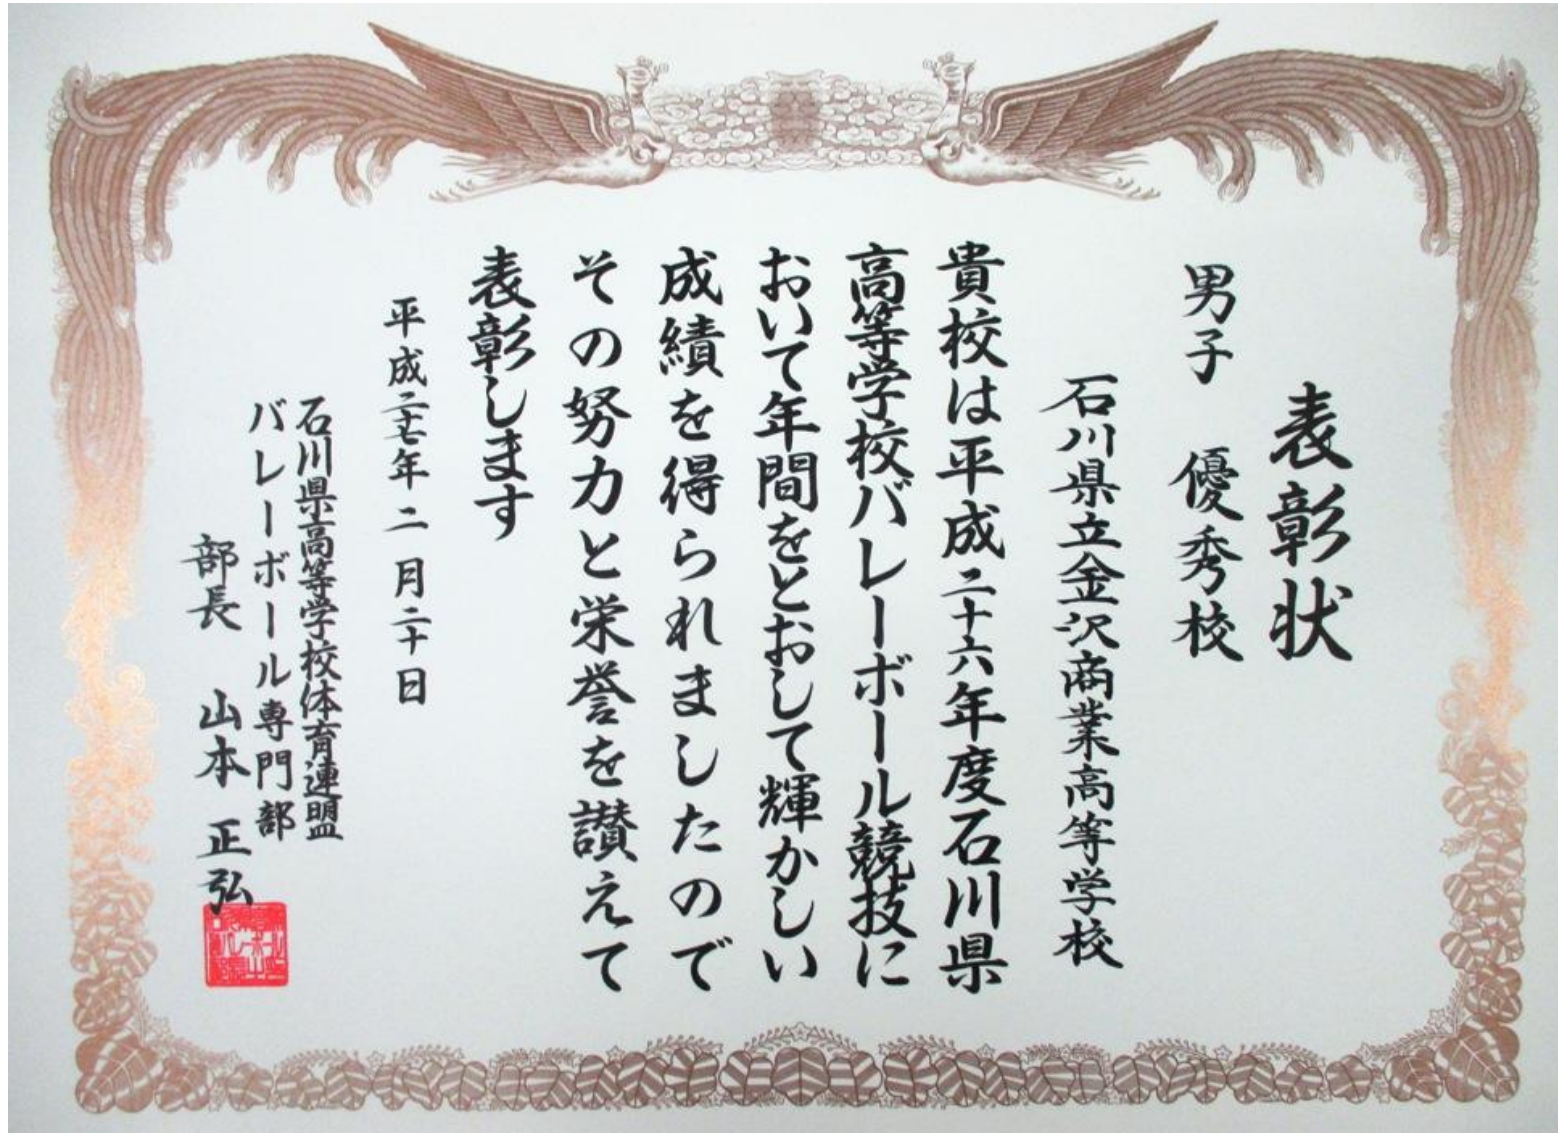 表彰状
男子 優秀校
石川県立金沢商業高等学校
貴校は平成二十六年度石川県
高等学校バレーボール競技に
おいて年間をとおして輝かしい
成績を得られましたので
その努力と栄誉を讃えて
表彰します
平成二十七年二月二十日
石川県高等学校体育連盟
バレーボール専門部
部長 山本正弘